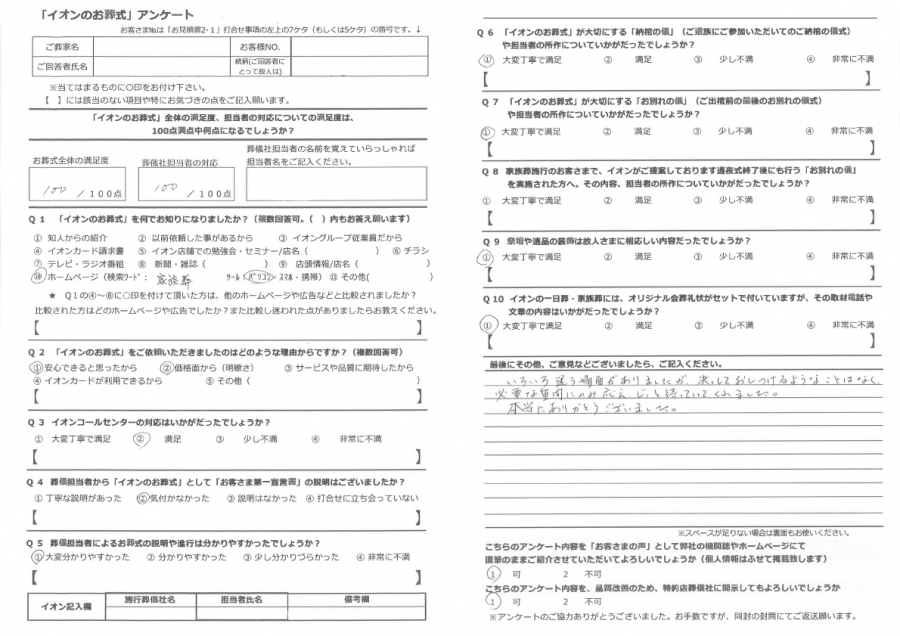 「イオンのお葬式」アンケート
お客さまNo.は「お見積書2-1」打合せ事項の左上の7ケタ(もしくは5ケタ)の番号です。↓
ご葬家名 お客様NO.
ご回答者氏名 続柄(ご回答者にとって故人は)
※当てはまるものに○印をお付け下さい。
【 】には該当のない項目や特にお気づきの点をご記入願います。
「イオンのお葬式」全体の満足度、担当者の対応についての満足度は、
100点満点中何点になるでしょうか?
お葬式全体の満足度 葬儀社担当者の対応 葬儀社担当者の名前を覚えていらっしゃれば
担当者名をご記入ください。
100 /100点 100 /100点
Q1 「イオンのお葬式」を何でお知りになりましたか?(複数回答可。( )内もお答え願います)
① 知人からの紹介 ② 以前依頼した事があるから ③ イオングループ従業員だから
④ イオンカード請求書 ⑤ イオン店舗での勉強会・セミナー/店名( ) ⑥ チラシ
⑦ テレビ・ラジオ番組 ⑧ 新聞・雑誌( ) ⑨ 店頭情報/店名( )
⑩ ホームページ(検索ワード: 家族葬 ツール:パソコン・スマホ・携帯) ⑪ その他( )
★ Q1の④~⑧に○印を付けて頂いた方は、他のホームページや広告などと比較されましたか?
比較された方はどのホームページや広告でしたか?また比較し迷われた点がありましたらお教えください。
【 】
Q2 「イオンのお葬式」をご依頼いただきましたのはどのような理由からですか?(複数回答可)
①安心できると思ったから ②価格面から(明瞭さ) ③ サービスや品質に期待したから
④ イオンカードが利用できるから ⑤ その他(
【 】
Q3 イオンコールセンターの対応はいかがだったでしょうか?
① 大変丁寧で満足 ② 満足 ③ 少し不満 ④ 非常に不満
【 】
Q4 葬儀担当者から「イオンのお葬式」として「お客さま第一宣言書」の説明はございましたか?
① 丁寧な説明があった ②気付かなかった ③ 説明はなかった ④ 打合せに立ち会っていない
【 】
Q5 葬儀担当者によるお葬式の説明や進行は分かりやすかったでしょうか?
①大変分かりやすかった ② 分かりやすかった ③ 少し分かりづらかった ④ 非常に不満
【 】
イオン記入欄 施行葬儀社名 担当者氏名 備考欄
Q6 「イオンのお葬式」が大切にする「納棺の儀」(ご遺族にご参加いただいてのご納棺の儀式)
や担当者の所作についていかがだったでしょうか?
① 大変丁寧で満足 ② 満足 ③ 少し不満 ④ 非常に不満
【 】
Q7 「イオンのお葬式」が大切にする「お別れの儀」(ご出棺前の最後のお別れの儀式)
や担当者の所作についていかがだったでしょうか?
① 大変丁寧で満足 ② 満足 ③ 少し不満 ④ 非常に不満
【 】
Q8 家族葬施行のお客さまで、イオンがご提案しております通夜式終了後にも行う「お別れの儀」
を実施された方へ。その内容、担当者の所作についていかがだったでしょうか?
① 大変丁寧で満足 ② 満足 ③ 少し不満 ④ 非常に不満
【 】
Q9 祭壇や遺品の装飾は故人さまに相応しい内容だったでしょうか?
① 大変丁寧で満足 ② 満足 ③ 少し不満 ④ 非常に不満
【 】
Q10 イオンの一日葬・家族葬には、オリジナル会葬礼状がセットで付いていますが、その取材電話や
文章の内容はいかがだったでしょうか?
① 大変丁寧で満足 ② 満足 ③ 少し不満 ④ 非常に不満
【 】
最後にその他、ご意見などございましたら、ご記入ください。
いろいろ迷う場面がありましたが、決しておしつけるようなことはなく、
必要な質問にのみ応え、じっと待っていてくれました。
本当にありがとうございました。
※スペースが足りない場合は裏面もお使いください。
こちらのアンケート内容を「お客さまの声」として弊社の機関誌やホームページにて
直筆のままご紹介させていただいてよろしいでしょうか(個人情報はふせて掲載致します)
1 可 2 不可
こちらのアンケート内容を、品質改善のため、特約店葬儀社に開示してもよろしいでしょうか
1 可 2 不可
※アンケートのご協力ありがとうございました。お手数ですが、同封の封筒にてご返送願います。